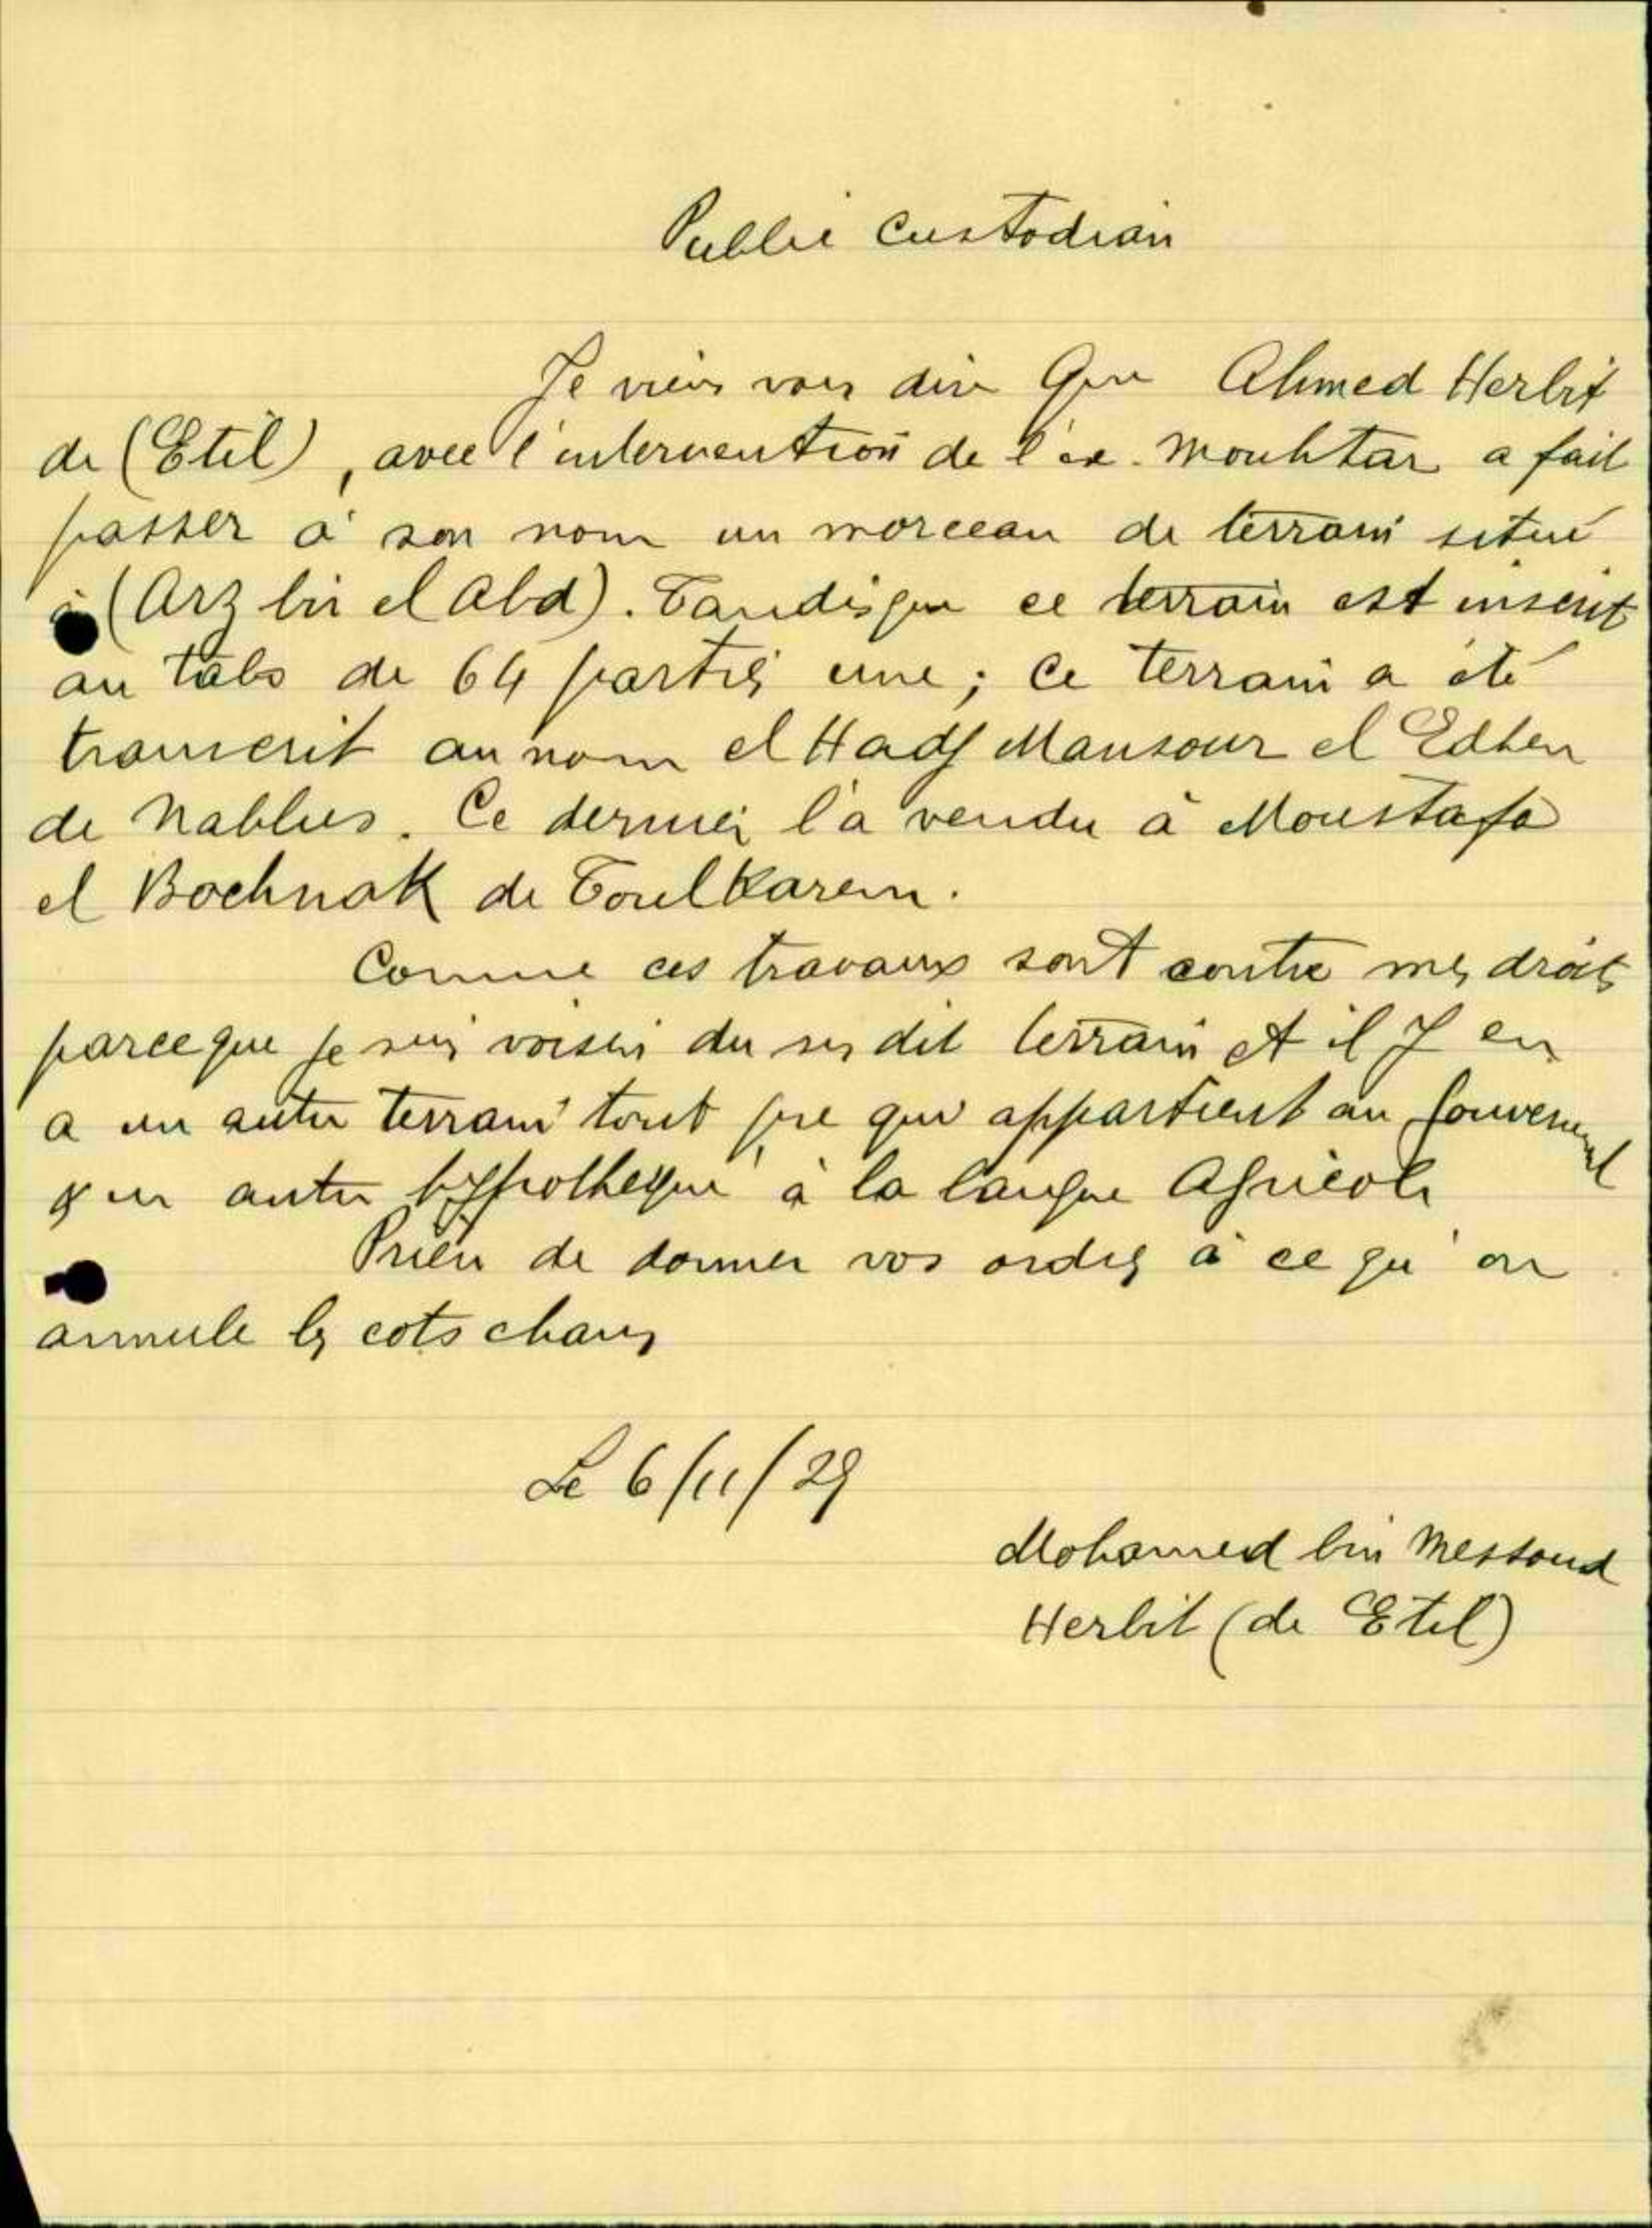 Public Custodian
Je viens vous dire Que Ahmed Herbit
de (Etil), avec l'intervention de l'ex. mouhtar a fait
passer à son nom un morceau de terrain situé
à (Arz bir el Abd). Tandisque ce terrain est inscrit
au tabo de 64 partis une; Ce terrain a été
transcrit au nom el Hadj Mansour el Edhen
de Nablus. Ce dernier l'a vendu à Moustafa
el Bochnak de Toulkarem.
Comme ces travaux sont contre mes droits
parceque je suis voisin du sus dit terrain et il y en
a un autre terrain tout pre qui appartient au Gouvernement
& un autre hypotheque à la banque Agricole
Prière de donner vos ordres à ce qu'on
annule les cots chans
Le 6/11/29
Mohamed bin Messoud
Herbit (de Etil)